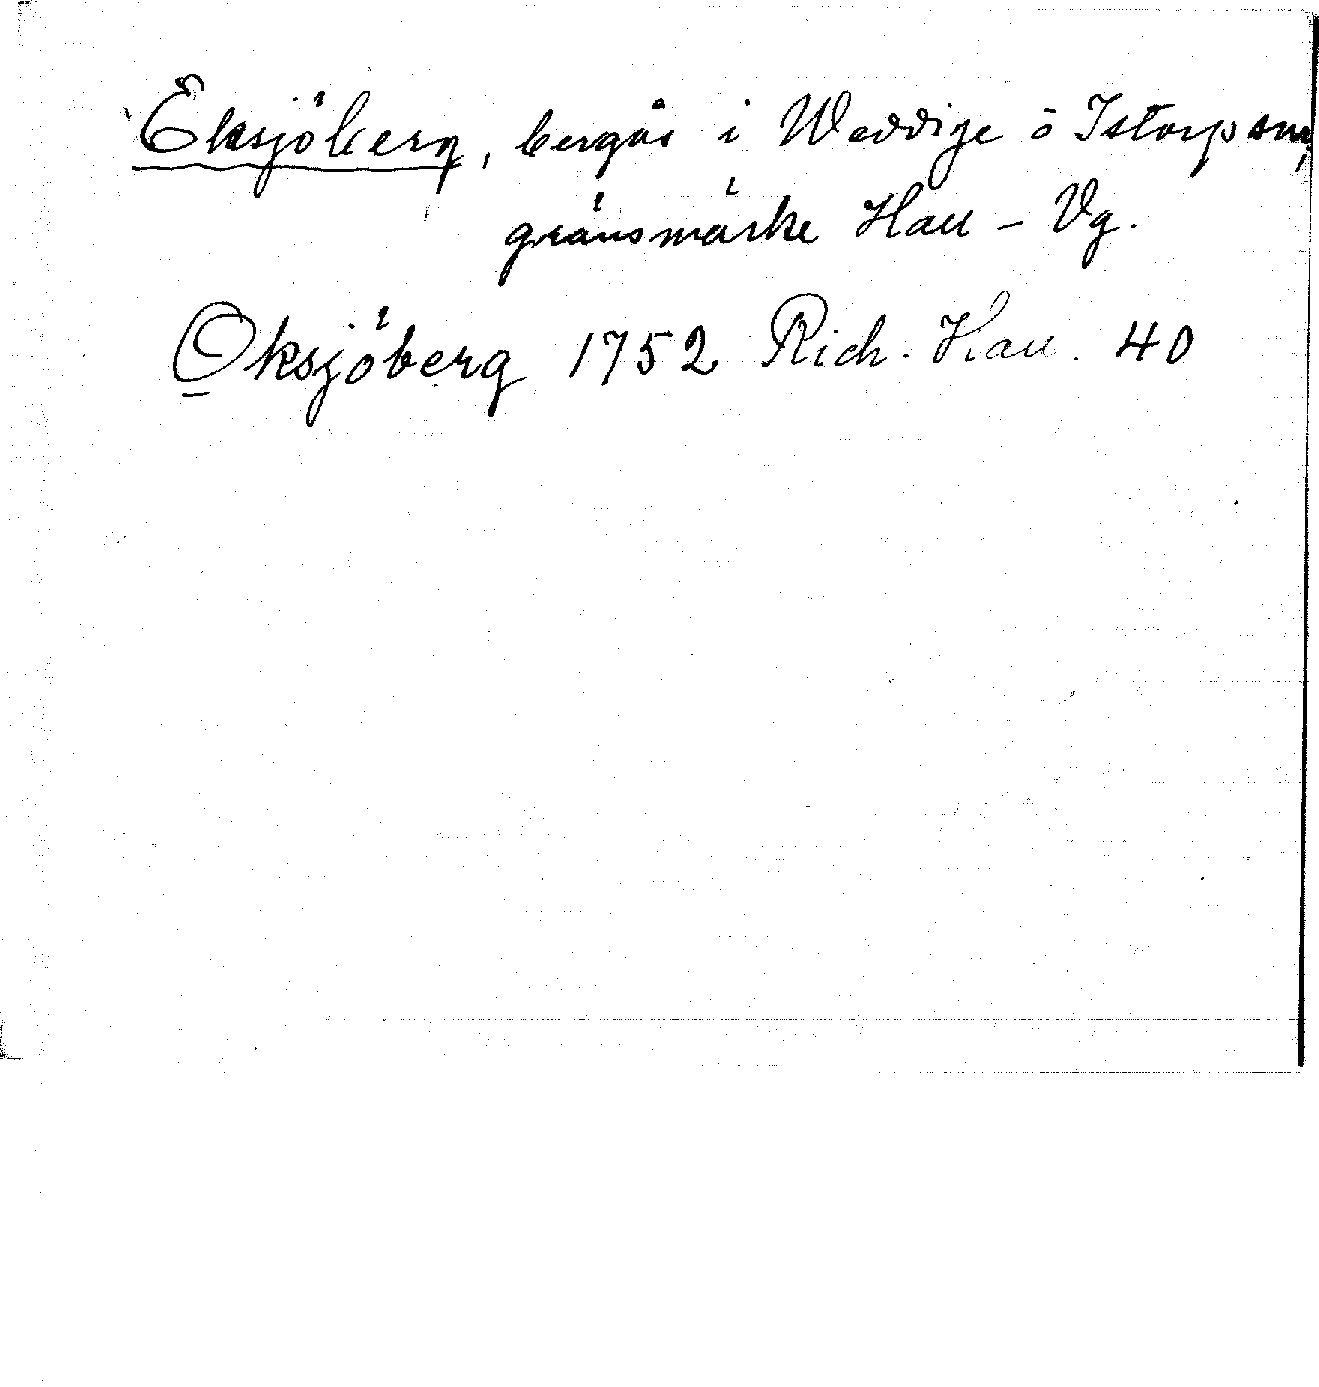 Eksjöberg, bergås i Weddige o Istorp snr,
gränsmärke Hall – Vg.
Oksjöberg 1752 Rich. Hall. 40